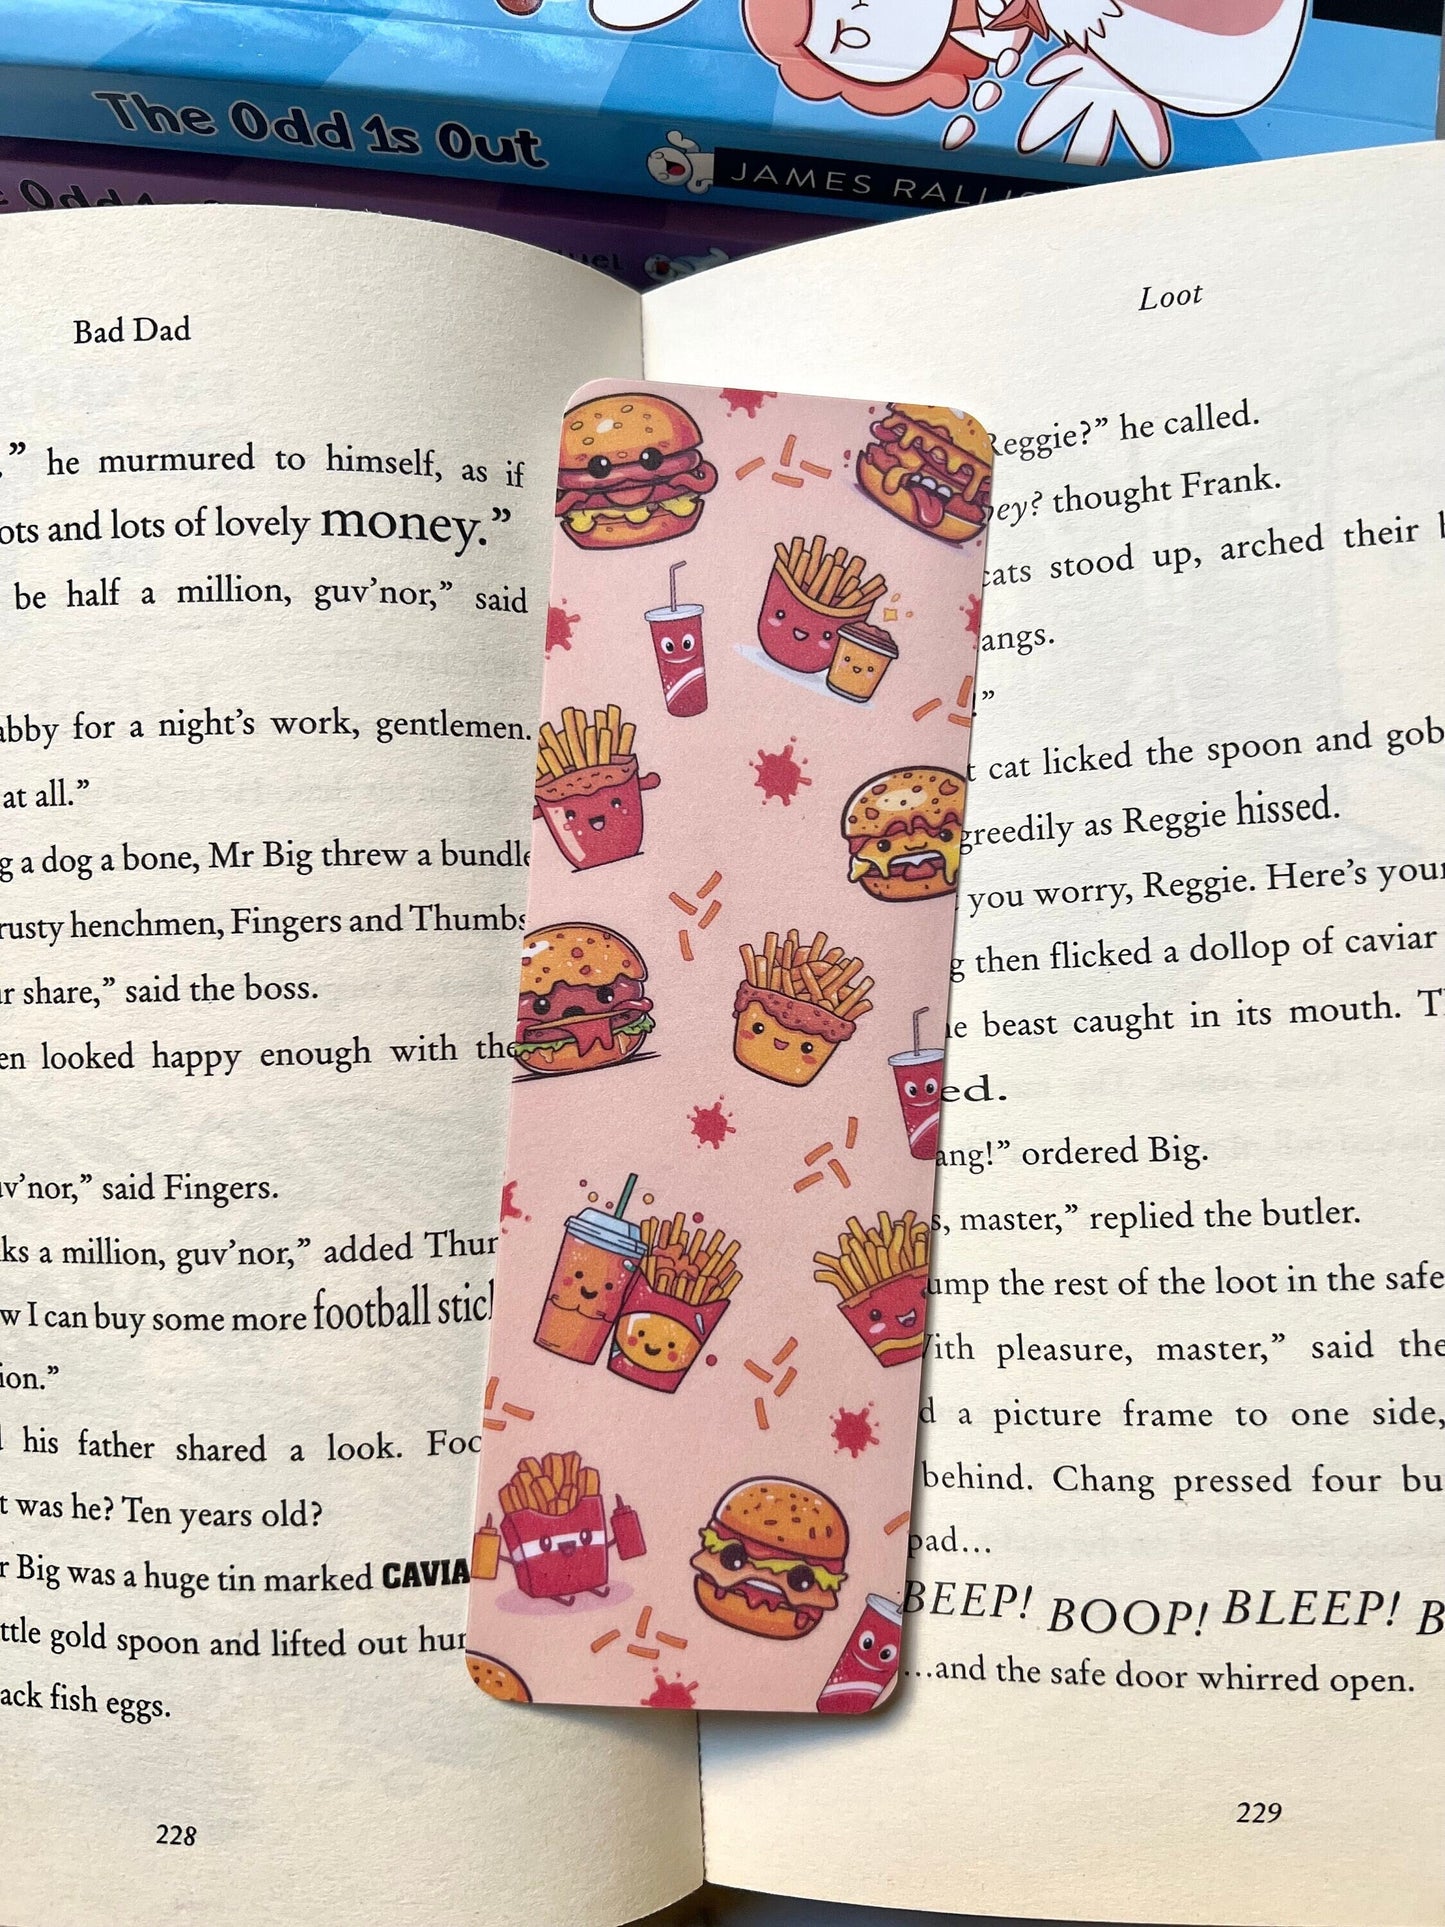 The Odd 1s Out
JAMES RALLIS
Odd 1s
Bad Dad
” he murmured to himself, as if
and lots of lovely money.”
be half a million, guv’nor,” said
for a night’s work, gentlemen.
at all.”
a dog a bone, Mr Big threw a bundle
henchmen, Fingers and Thumbs
share,” said the boss.
looked happy enough with the
said Fingers.
a million, guv’nor,” added
I can buy some more football
his father shared a look.
was he? Ten years old?
Big was a huge tin marked CAVIA
gold spoon and lifted out
fish eggs.
228
Loot
Reggie?” he called.
thought Frank.
cats stood up, arched their
”
cat licked the spoon and
greedily as Reggie hissed.
you worry, Reggie. Here’s
then flicked a dollop of caviar
beast caught in its mouth.
ordered Big.
master,” replied the butler.
the rest of the loot in the safe
pleasure, master,” said the
a picture frame to one side,
behind. Chang pressed four
pad…
BEEP! BOOP! BLEEP! B
…and the safe door whirred open.
229